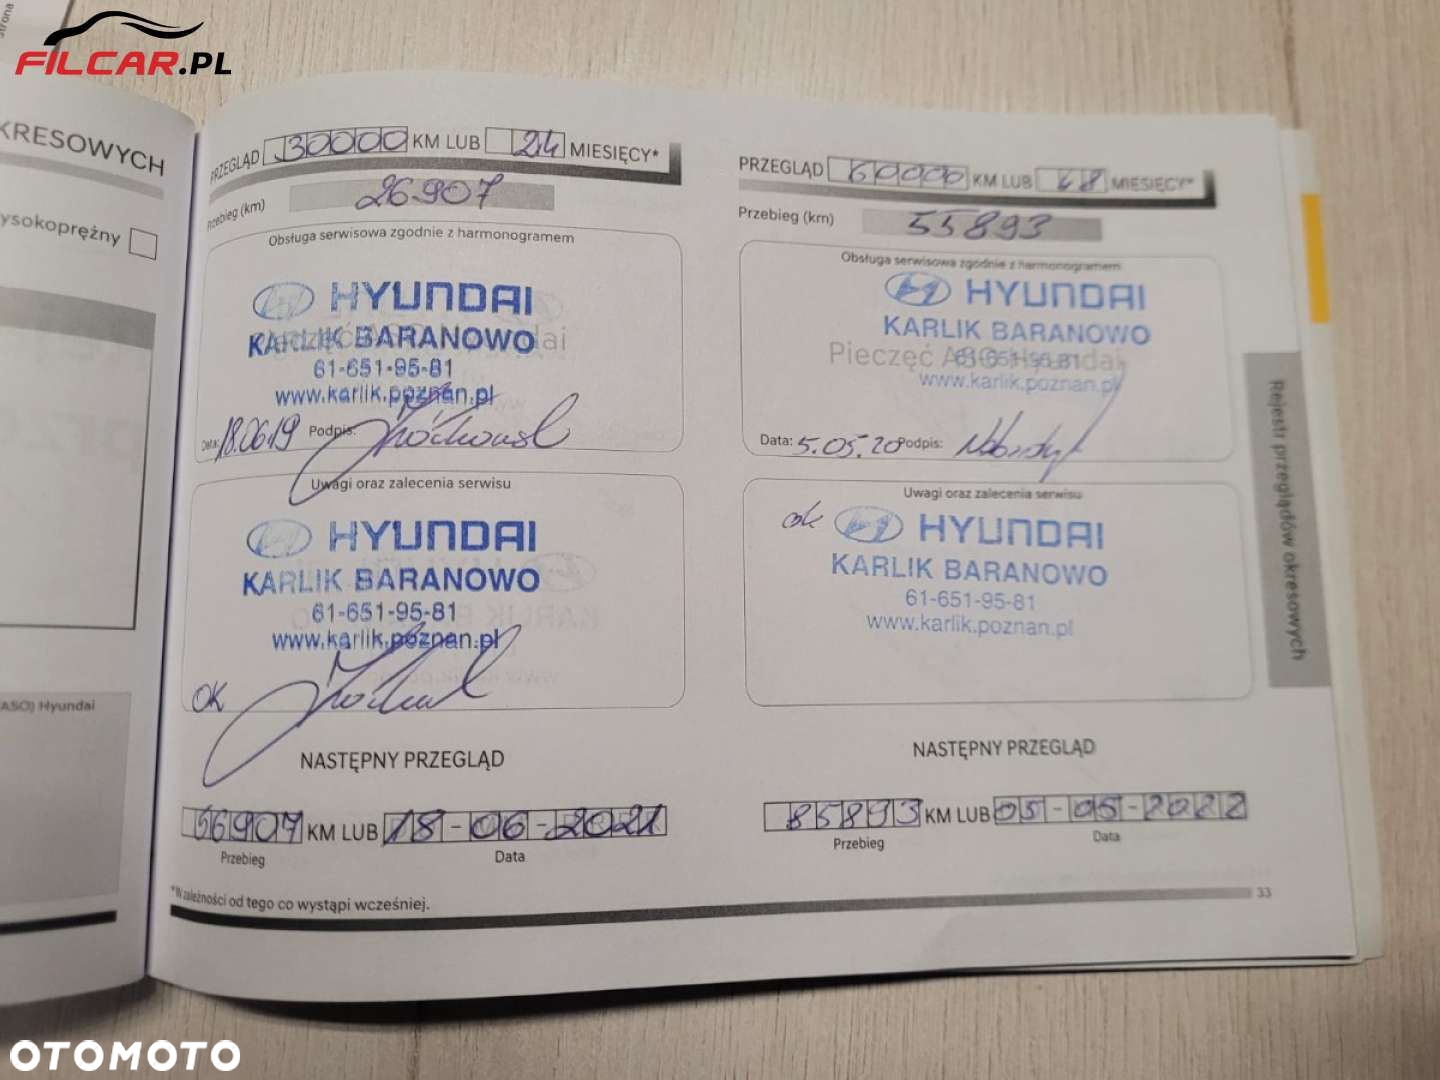 FILCAR.PL
strona
KRESOWYCH
ysokoprężny
ASO) Hyundai
PRZEGLĄD 30000 KM LUB 24 MIESIĘCY*
Przebieg (km) 26.907
Obsługa serwisowa zgodnie z harmonogramem
HYUNDAI
KARLIK BARANOWO
61-651-95-81
www.karlik.poznan.pl
Data: 18.06.19 Podpis:
Uwagi oraz zalecenia serwisu
HYUNDAI
KARLIK BARANOWO
61-651-95-81
www.karlik.poznan.pl
OK
NASTĘPNY PRZEGLĄD
56907 KM LUB 18-06-2021
Przebieg Data
*W zależności od tego co wystąpi wcześniej.
PRZEGLĄD 60000 KM LUB 48 MIESIĘCY*
Przebieg (km) 55893
Obsługa serwisowa zgodnie z harmonogramem
HYUNDAI
KARLIK BARANOWO
Pieczęć ASO Hyundai
61-651-95-81
www.karlik.poznan.pl
Data: 5.05.20 Podpis:
Uwagi oraz zalecenia serwisu
ok HYUNDAI
KARLIK BARANOWO
61-651-95-81
www.karlik.poznan.pl
NASTĘPNY PRZEGLĄD
85893 KM LUB 05-05-2022
Przebieg Data
33
Rejestr przeglądów okresowych
OTOMOTO